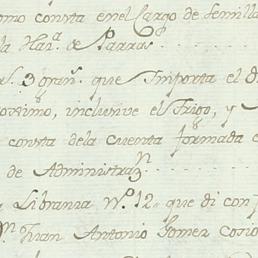 como consta en el Cargo de Semilla
la Haz.ª de Parras
3 gran.s que Importa el d
oximo, inclusive el Trigo, y
consta de la cuenta formada
de Administraz.n
Libranza N.º 12. que di con
D.n Juan Antonio Gomez Cosio